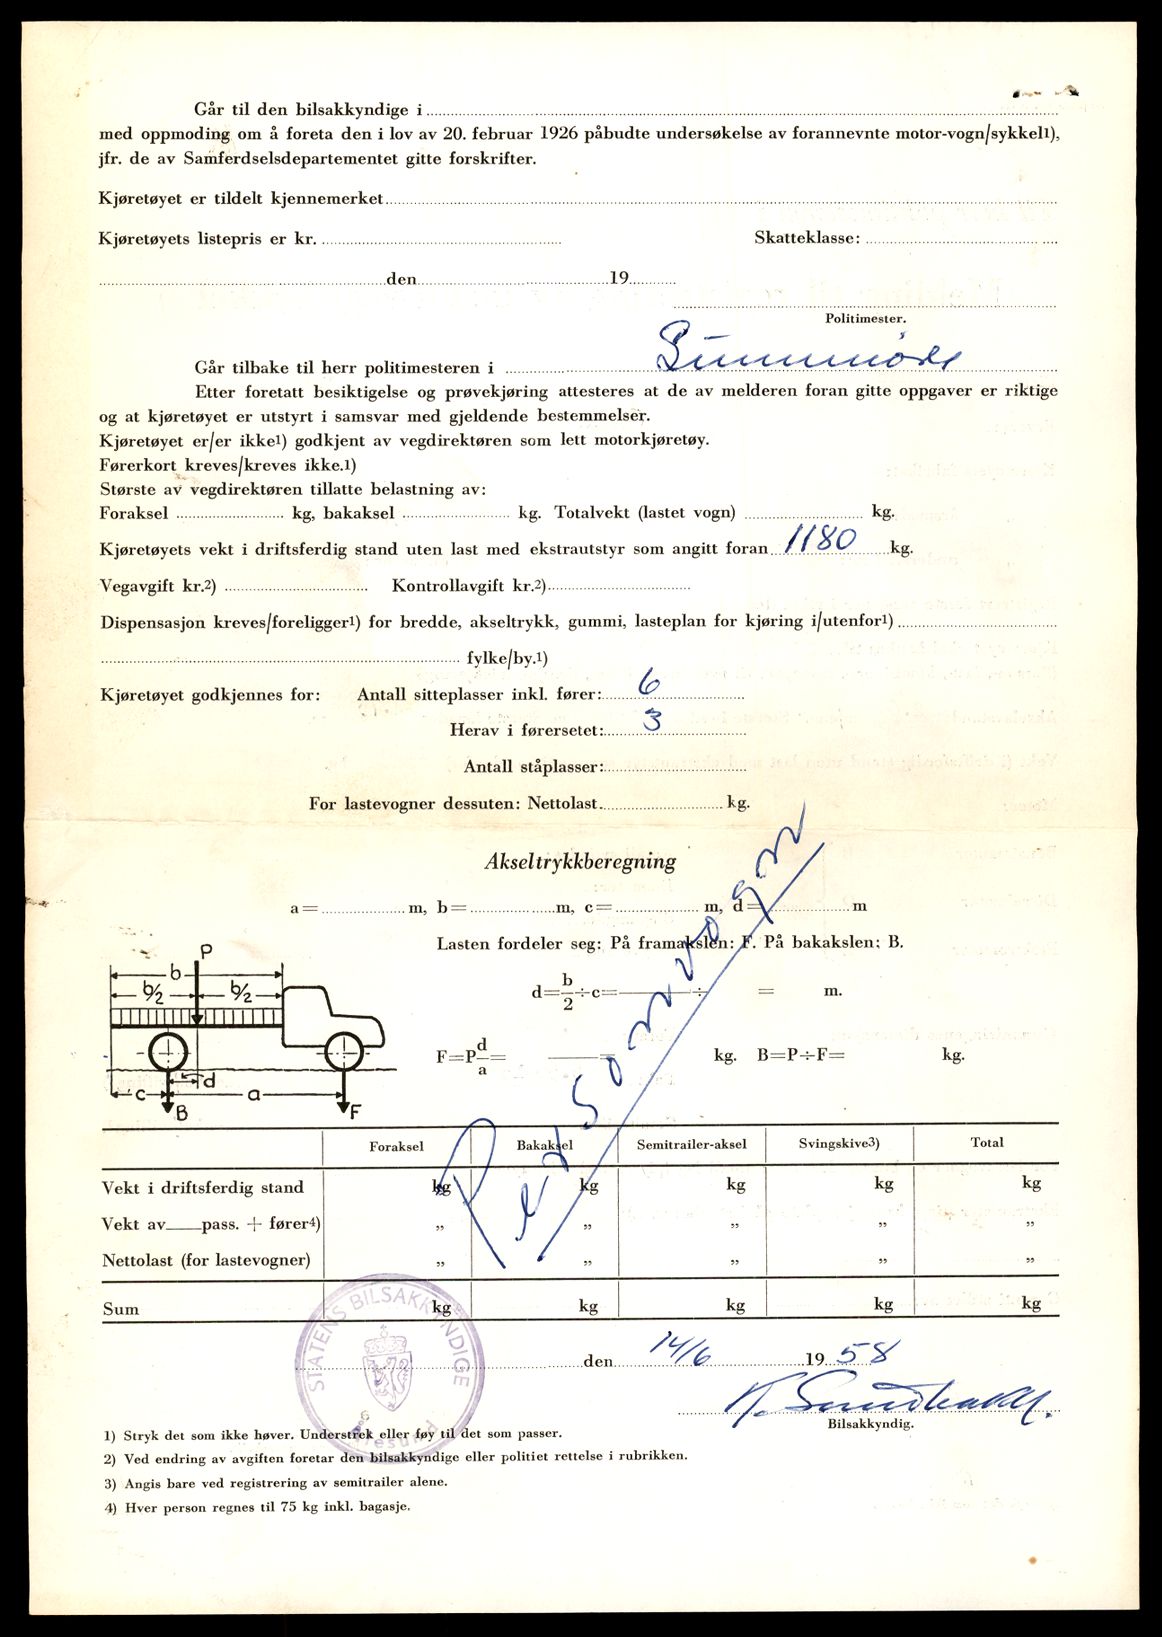 Går til den bilsakkyndige i
med oppmoding om å foreta den i lov av 20. februar 1926 påbudte undersøkelse av forannevnte motor-vogn/sykkel1),
jfr. de av Samferdselsdepartementet gitte forskrifter.
Kjøretøyet er tildelt kjennemerket
Kjøretøyets listepris er kr. Skatteklasse:
den 19
Politimester.
Går tilbake til herr politimesteren i Sunnmøre
Etter foretatt besiktigelse og prøvekjøring attesteres at de av melderen foran gitte oppgaver er riktige
og at kjøretøyet er utstyrt i samsvar med gjeldende bestemmelser.
Kjøretøyet er/er ikke1) godkjent av vegdirektøren som lett motorkjøretøy.
Førerkort kreves/kreves ikke.1)
Største av vegdirektøren tillatte belastning av:
Foraksel kg, bakaksel kg. Totalvekt (lastet vogn) kg.
Kjøretøyets vekt i driftsferdig stand uten last med ekstrautstyr som angitt foran 1180 kg.
Vegavgift kr.2) Kontrollavgift kr.2)
Dispensasjon kreves/foreligger1) for bredde, akseltrykk, gummi, lasteplan for kjøring i/utenfor1)
fylke/by.1)
Kjøretøyet godkjennes for: Antall sitteplasser inkl. fører: 6
Herav i førersetet: 3
Antall ståplasser:
For lastevogner dessuten: Nettolast kg.
Akseltrykkberegning
a= m, b= m, c= m, d= m
Lasten fordeler seg: På framakslen: F. På bakakslen: B.
d=b/2÷c= ÷ = m.
F=P d/a= = kg. B=P÷F= kg.
P
b
b/2 b/2
d
c a
B F
Personvogn
Foraksel Bakaksel Semitrailer-aksel Svingskive3) Total
Vekt i driftsferdig stand kg kg kg kg kg
Vekt av pass. + fører4) „ „ „ „ „
Nettolast (for lastevogner) „ „ „ „ „
Sum kg kg kg kg kg
STATENS BILSAKKYNDIGE
6
Ålesund
den 14/6 1958
Bilsakkyndig.
1) Stryk det som ikke høver. Understrek eller føy til det som passer.
2) Ved endring av avgiften foretar den bilsakkyndige eller politiet rettelse i rubrikken.
3) Angis bare ved registrering av semitrailer alene.
4) Hver person regnes til 75 kg inkl. bagasje.